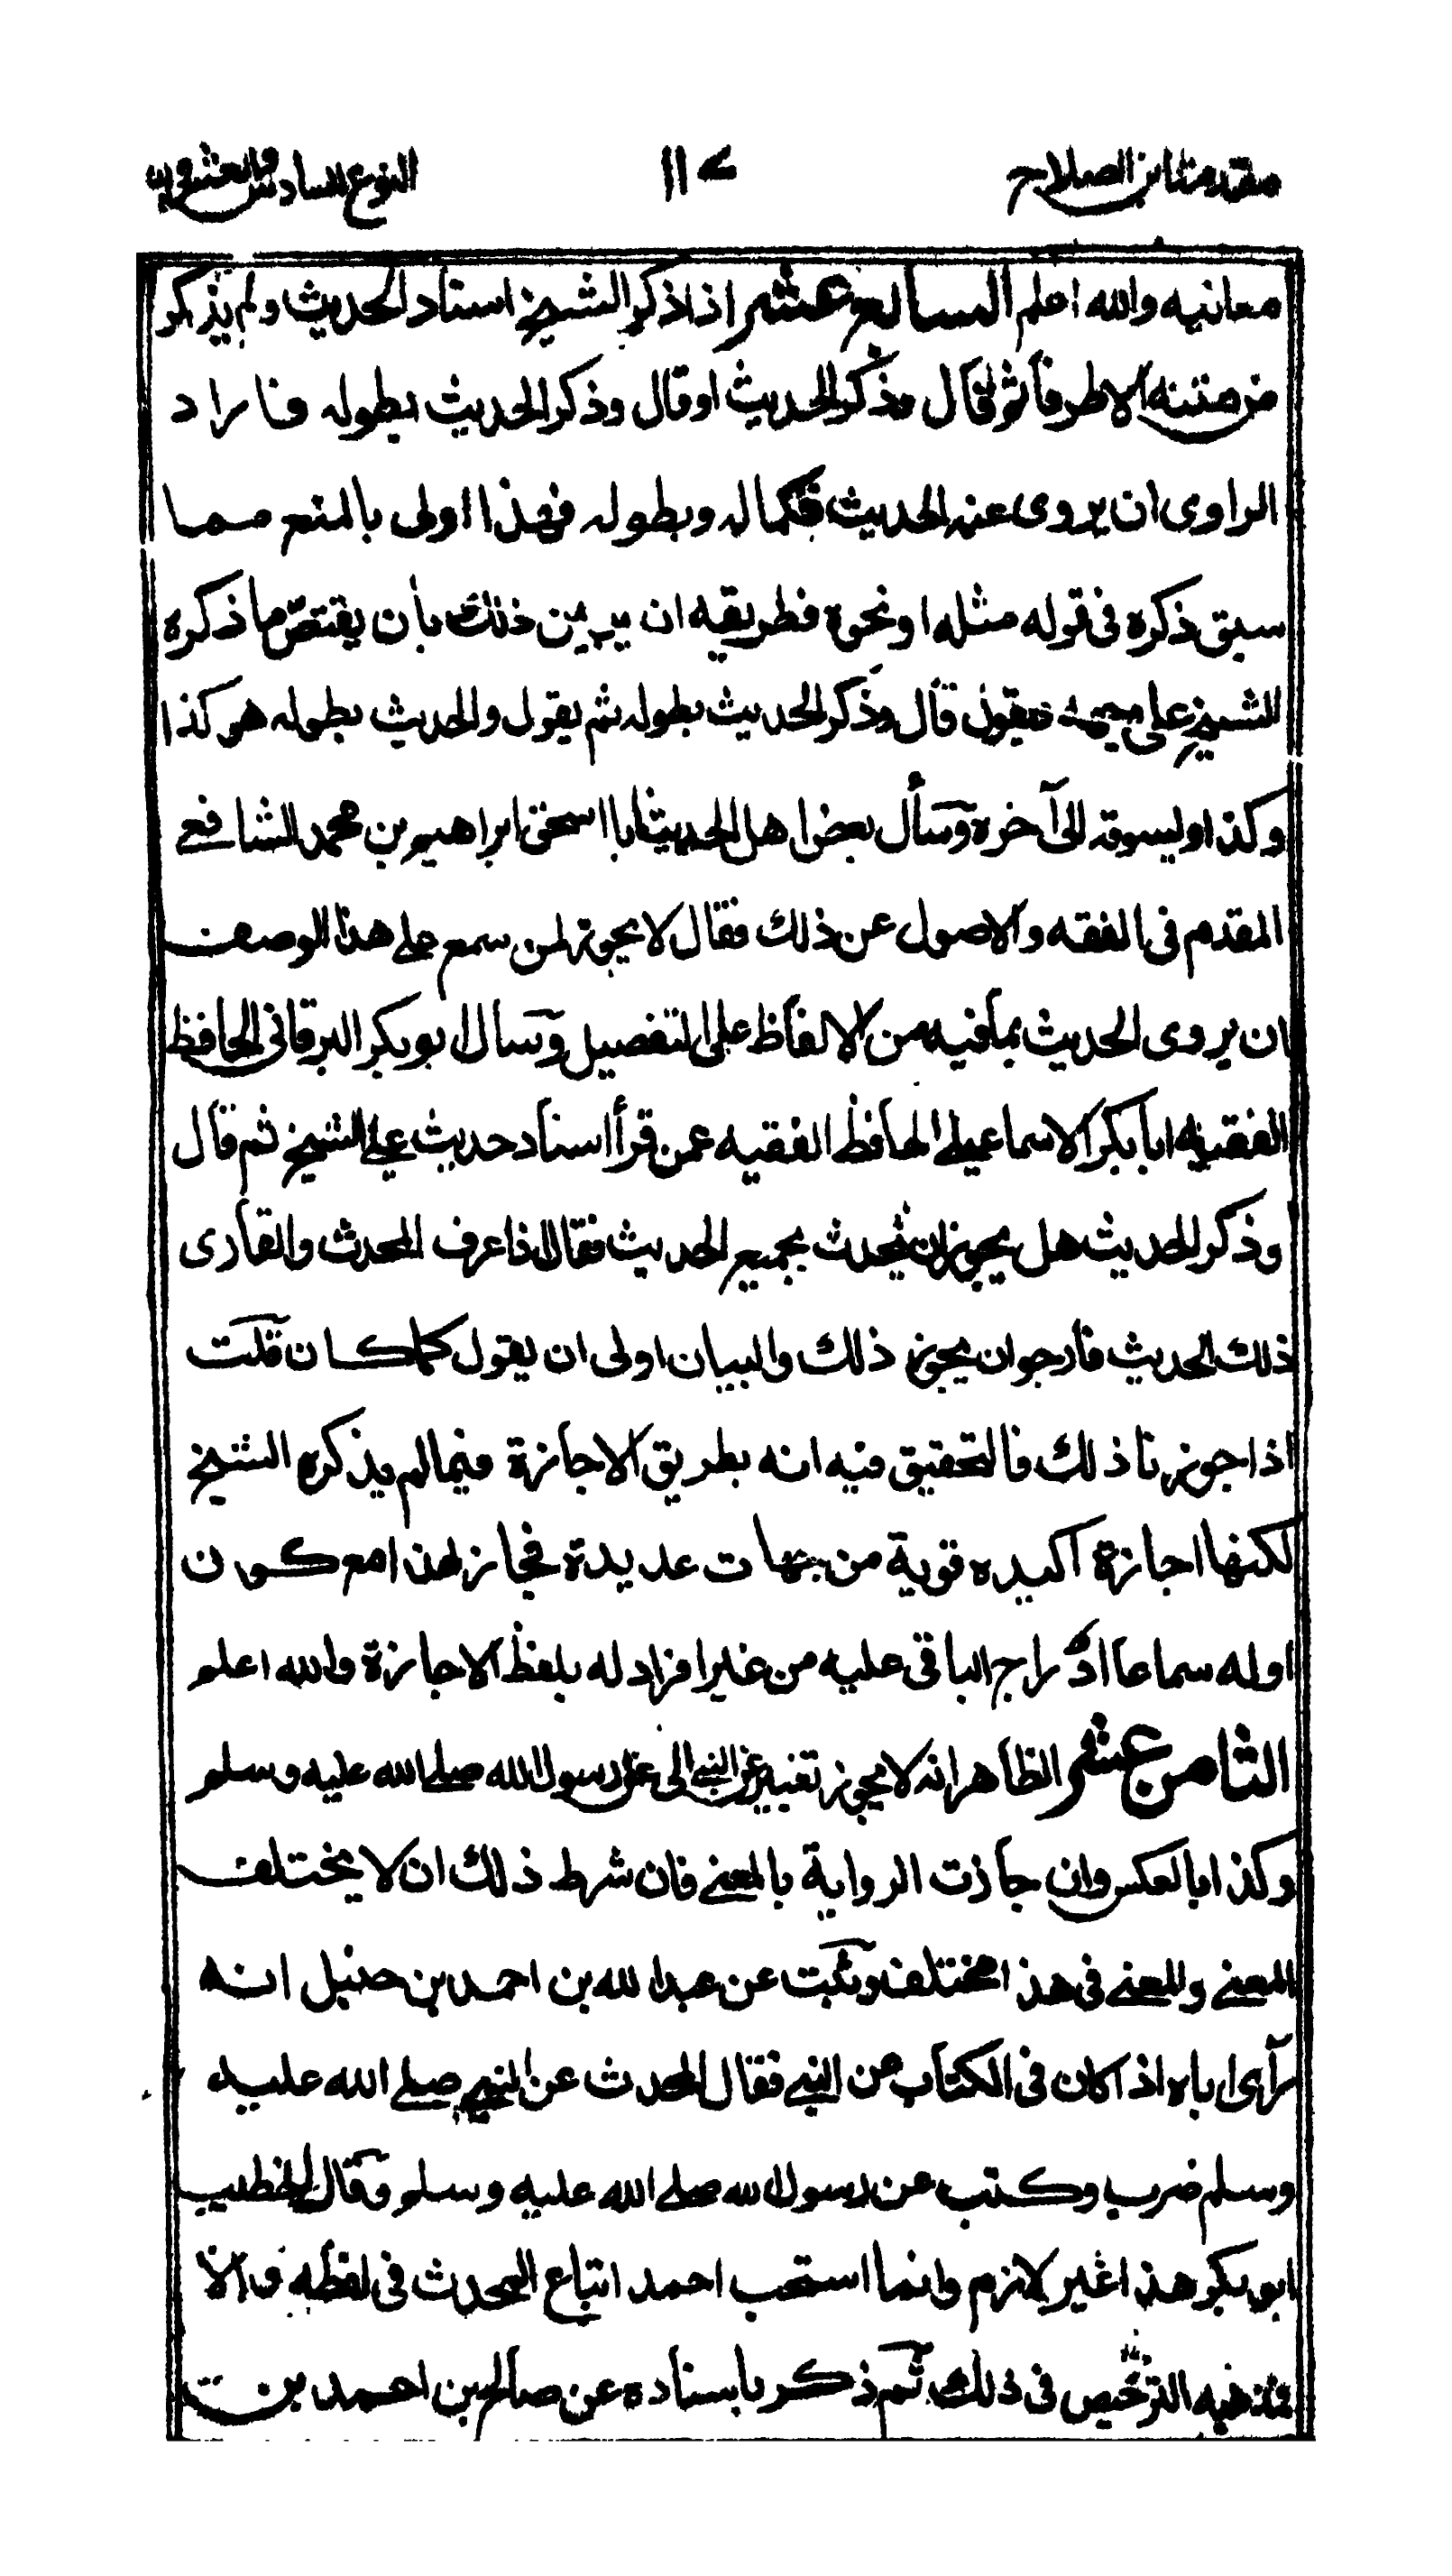 مقدمة ابن الصلاح ١١٧ النوع السادس والعشرون
معانيه والله اعلم السابع عشر اذا ذكر الشيخ اسناد الحديث ولم يذكر
من متنه الا طرفا ثم قال وذكر الحديث او قال وذكر الحديث بطوله فاراد
الراوى ان يروى عنه الحديث بكماله وبطوله فهذا اولى بالمنع مما
سبق ذكره فى قوله مثله او نحوه فطريقه ان يبين ذلك بأن يقتص ما ذكره
الشيخ على وجهه فيقول قال وذكر الحديث بطوله ثم يقول والحديث بطوله هو كذا
وكذا ويسوقه الى آخره وسأل بعض اهل الحديث ابا اسحق ابراهيم بن محمد الشافعى
المقدم فى الفقه والاصول عن ذلك فقال لا يجوز لمن سمع على هذا الوصف
ان يروى الحديث بما فيه من الالفاظ على التفصيل وسأل ابو بكر البرقانى الحافظ
الفقيه ابا بكر الاسماعيلى الحافظ الفقيه عمن قرأ اسناد حديث على الشيخ ثم قال
وذكر الحديث هل يجوز ان يحدث بجميع الحديث فقال اذا عرف المحدث والقارى
ذلك الحديث فأرجو ان يجوز ذلك والبيان اولى ان يقول كما كان قلت
اذا جوزنا ذلك فالتحقيق فيه انه بطريق الاجازة فيما لم يذكره الشيخ
لكنها اجازة اكيده قوية من جهات عديدة فجاز لهذا مع كون
اوله سماعا ادراج الباقى عليه من غير افراد له بلفظ الاجازة والله اعلم
الثامن عشر الظاهر انه لا يجوز تغيير عن النبى الى عن رسول الله صلى الله عليه وسلم
وكذا بالعكس وان جاذت الرواية بالمعنى فان شرط ذلك ان لا يختلف
المعنى والمعنى فى هذا مختلف وثبت عن عبد الله بن احمد بن حنبل انه
رآى اباه اذا كان فى الكتاب عن النبى فقال المحدث عن النبى صلى الله عليه
وسلم ضرب وكتب عن رسول الله صلى الله عليه وسلم وقال الخطيب
ابو بكر هذا غير لازم وانما استحب احمد اتباع المحدث فى لفظه والا
فمذهبه الترخيص فى ذلك ثم ذكر باسناده عن صالح بن احمد بن